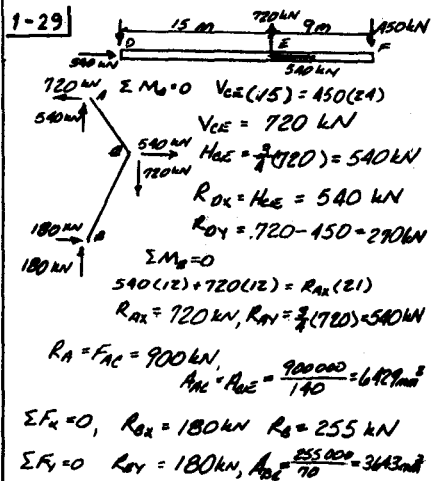 1-29
15 m 720 kN 9m 450kN
D E F
540 kN 540kN
720 kN A ΣM_D=0 V_CE(15) = 450(24)
540kN V_CE = 720 kN
C 540 kN H_CE = 3/4(720) = 540kN
720 kN R_DX = H_CE = 540 kN
180kN B R_DY = 720-450=270kN
180 kN ΣM_B=0
540(12)+720(12) = R_AX(21)
R_AX = 720 kN, R_AY = 3/4(720)=540kN
R_A = F_AC = 900 kN,
A_AC = A_CE = 900000/140 = 6429mm²
ΣF_X=0, R_BX = 180kN R_B = 255 kN
ΣF_Y=0 R_BY = 180kN, A_BC = 255000/70 = 3643mm²